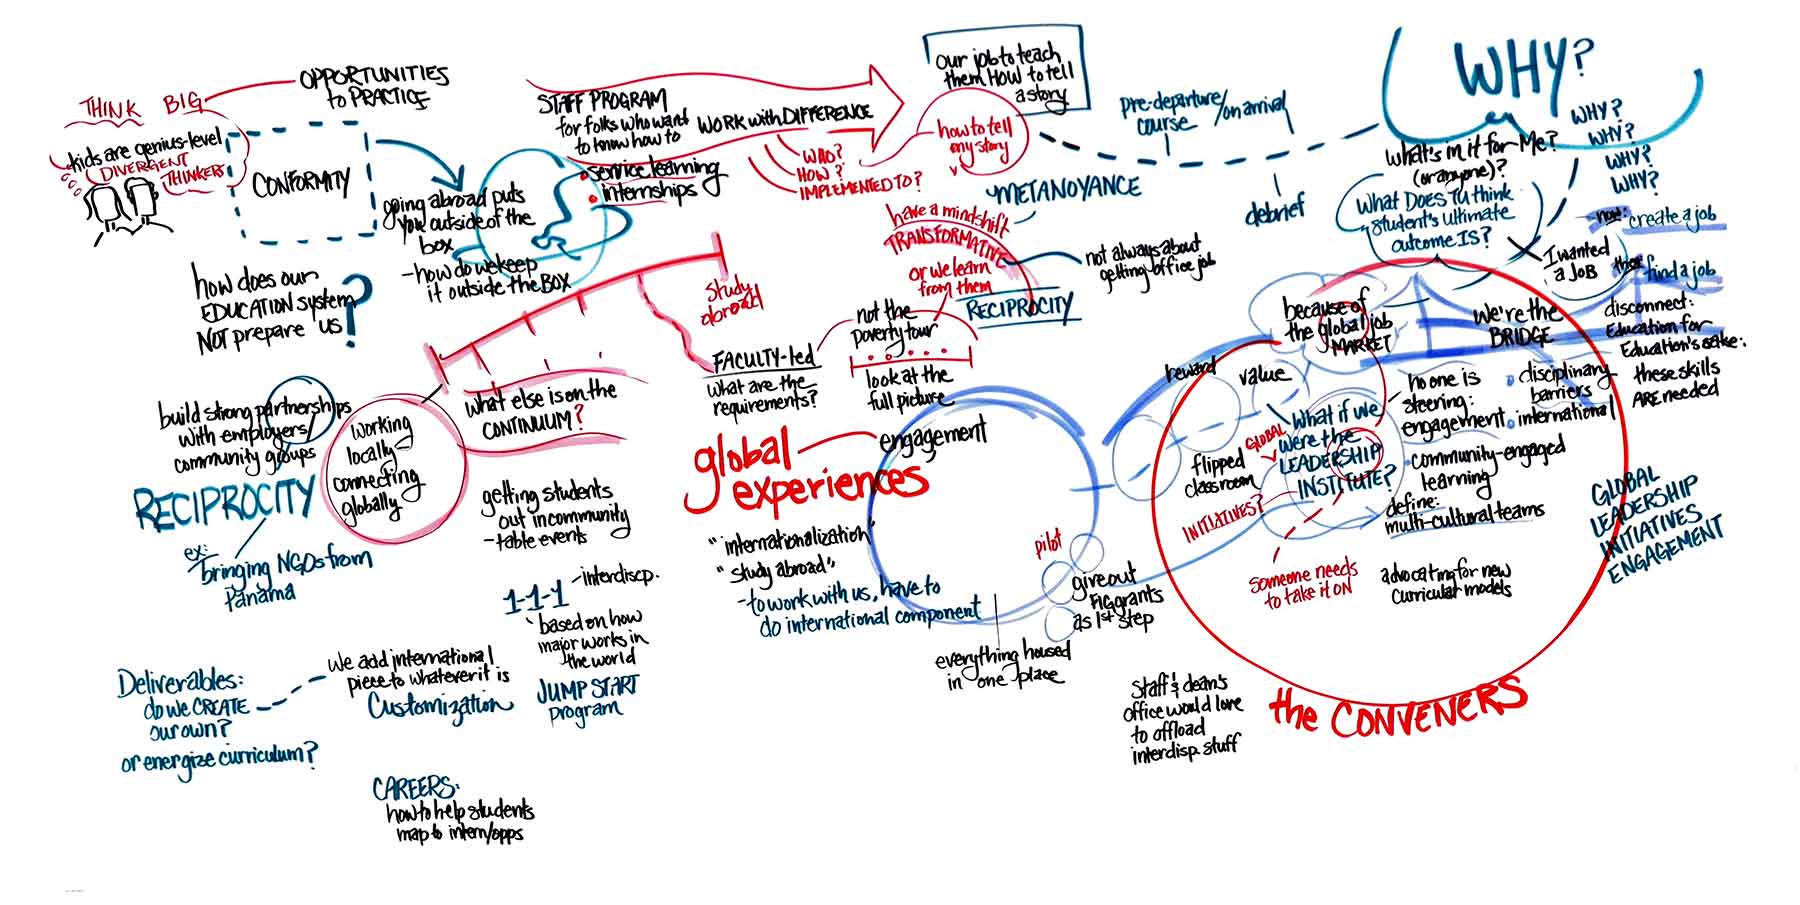 THINK BIG
OPPORTUNITIES
to PRACTICE
kids are genius-level
DIVERGENT
THINKERS
CONFORMITY
going abroad puts
you outside of the
box
-how do we keep
it outside the BOX
how does our
EDUCATION system
NOT prepare us?
STAFF PROGRAM
for folks who want
to know how to
WORK with DIFFERENCE
service learning
internships
WHO?
HOW?
IMPLEMENTED TO?
our job to teach
them HOW to tell
a story
how to tell
my story
pre-departure/on arrival
course
debrief
METANOYANCE
have a mindshift
TRANSFORMATIVE
or we learn
from them
RECIPROCITY
not always about
getting office job
WHY?
WHY?
WHY?
WHY?
WHY?
What's in it for Me?
(or anyone)?
What DOES TU think
student's ultimate
outcome IS?
I wanted
a JOB
now: create a job
then: find a job
disconnect:
Education for
Education's sake:
these skills
ARE needed
We're the
BRIDGE
because of
the global job
MARKET
study
abroad
not the
poverty tour
look at the
full picture
FACULTY-led
what are the
requirements?
What else is on the
CONTINUUM?
working
locally-
connecting
globally
build strong partnerships
with employers/
community groups
RECIPROCITY
ex:
bringing NGOs from
Panama
getting students
out in community
-table events
1-1-1
-interdiscp.
based on how
major works in
the world
JUMP START
program
We add international
piece to whatever it is
Customization
Deliverables:
do we CREATE
our own?
or energize curriculum?
CAREERS:
how to help students
map to intern/opps
global
experiences
engagement
"internationalization"
"study abroad"
-to work with us, have to
do international component
pilot
give out
FIG grants
as 1st step
everything housed
in one place
reward
value
flipped
classroom
What if we
GLOBAL
were the
LEADERSHIP
INSTITUTE?
INITIATIVES?
no one is
steering:
engagement
disciplinary
barriers
international
community-engaged
learning
define:
multi-cultural teams
someone needs
to take it on
advocating for new
curricular models
GLOBAL
LEADERSHIP
INITIATIVES
ENGAGEMENT
the CONVENERS
Staff & dean's
office would love
to offload
interdisp. stuff